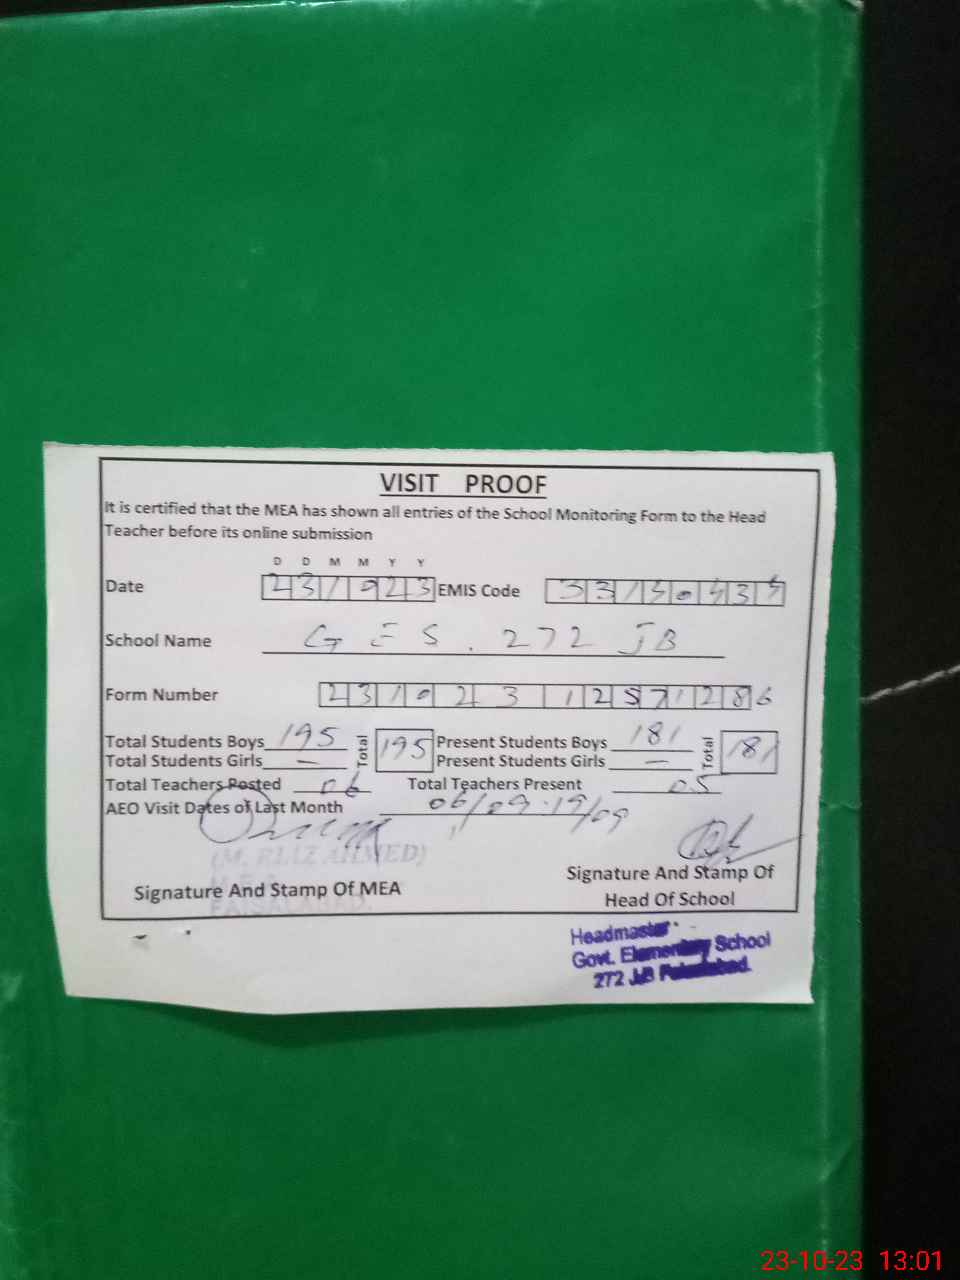 VISIT PROOF
It is certified that the MEA has shown all entries of the School Monitoring Form to the Head
Teacher before its online submission
D D M M Y Y
Date 231023 EMIS Code
School Name GES. 272 JB
Form Number 231023 12571286
Total Students Boys 195 Total 195 Present Students Boys 181 Total 181
Total Students Girls — Present Students Girls —
Total Teachers Posted 06 Total Teachers Present 05
AEO Visit Dates of Last Month 06/09. 19/09
AHMED)
Signature And Stamp Of MEA
Signature And Stamp Of
Head Of School
Headmaster
Govt. Elementary School
272 JB Faisalabad.
23-10-23 13:01